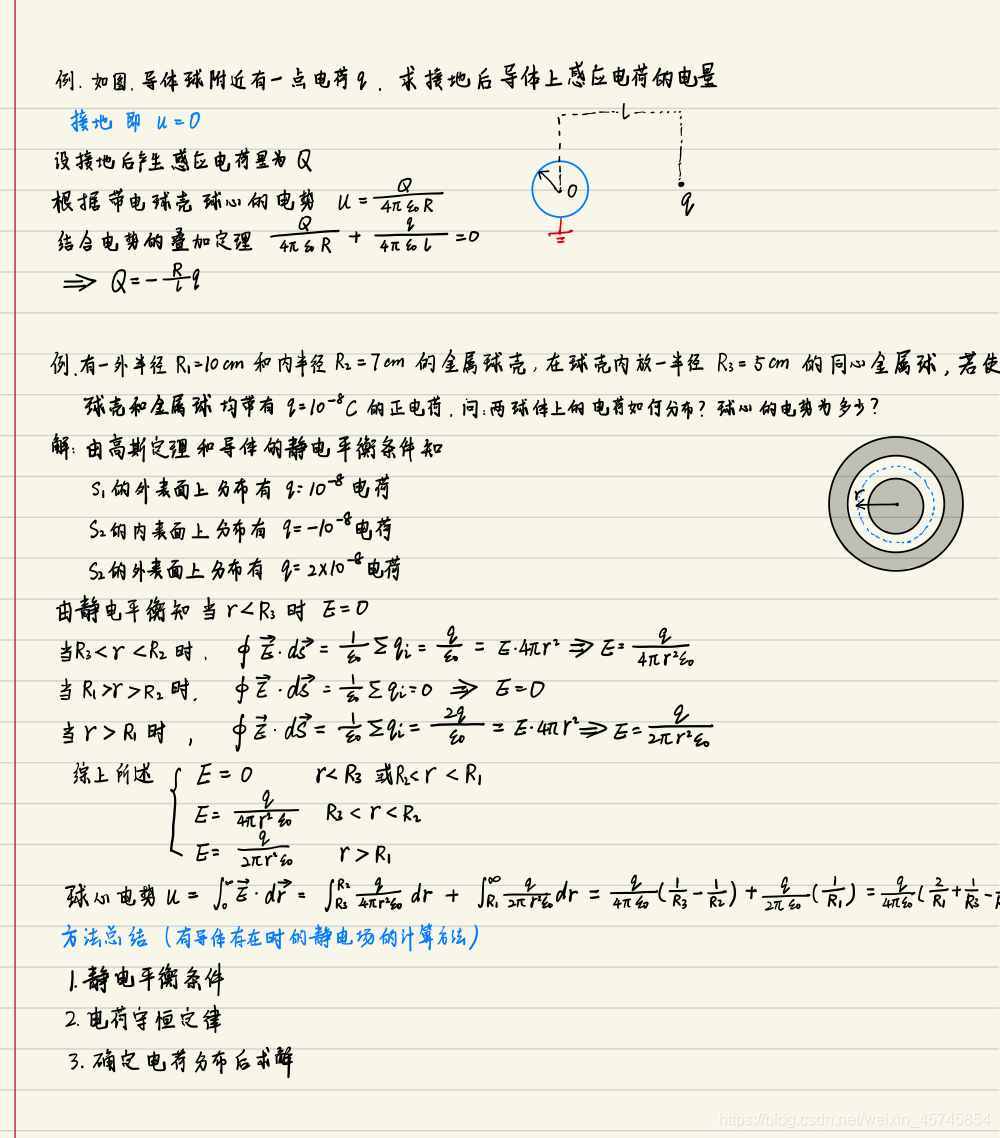 例. 如图. 导体球附近有一点电荷q. 求接地后导体上感应电荷的电量
接地即 u=0
设接地后产生感应电荷量为Q
根据带电球壳球心的电势 u=\frac{Q}{4πε₀R}
结合电势的叠加定理 \frac{Q}{4πε₀R} + \frac{q}{4πε₀l} =0
⇒ Q=-\frac{R}{l}q
l
O
q
例.有一外半径 R₁=10cm 和内半径 R₂=7cm 的金属球壳,在球壳内放一半径 R₃=5cm 的同心金属球,若使
球壳和金属球均带有 q=10⁻⁸C 的正电荷.问:两球体上的电荷如何分布?球心的电势为多少?
解:由高斯定理和导体的静电平衡条件知
S₁的外表面上分布有 q=10⁻⁸电荷
S₂的内表面上分布有 q=-10⁻⁸电荷
S₂的外表面上分布有 q=2×10⁻⁸电荷
r
由静电平衡知 当 r<R₃ 时 E=0
当R₃<r<R₂时. ∮E⃗·dS⃗ = \frac{1}{ε₀}Σqᵢ = \frac{q}{ε₀} = E·4πr² ⇒ E=\frac{q}{4πr²ε₀}
当 R₁>r>R₂时. ∮E⃗·dS⃗ = \frac{1}{ε₀}Σqᵢ=0 ⇒ E=0
当 r>R₁ 时 , ∮E⃗·dS⃗ = \frac{1}{ε₀}Σqᵢ = \frac{2q}{ε₀} = E·4πr² ⇒ E=\frac{q}{2πr²ε₀}
综上所述 { E=0 r<R₃ 或R₂<r<R₁
E= \frac{q}{4πr²ε₀} R₃<r<R₂
E= \frac{q}{2πr²ε₀} r>R₁
球心电势 u = ∫₀^∞ E⃗·dr⃗ = ∫_{R₃}^{R₂} \frac{q}{4πr²ε₀} dr + ∫_{R₁}^∞ \frac{q}{2πr²ε₀} dr = \frac{q}{4πε₀}(\frac{1}{R₃}-\frac{1}{R₂}) + \frac{q}{2πε₀}(\frac{1}{R₁}) = \frac{q}{4πε₀}(\frac{2}{R₁}+\frac{1}{R₃}-
方法总结(有导体存在时的静电场的计算方法)
1.静电平衡条件
2.电荷守恒定律
3.确定电荷分布后求解
https://blog.csdn.net/weixin_45745854